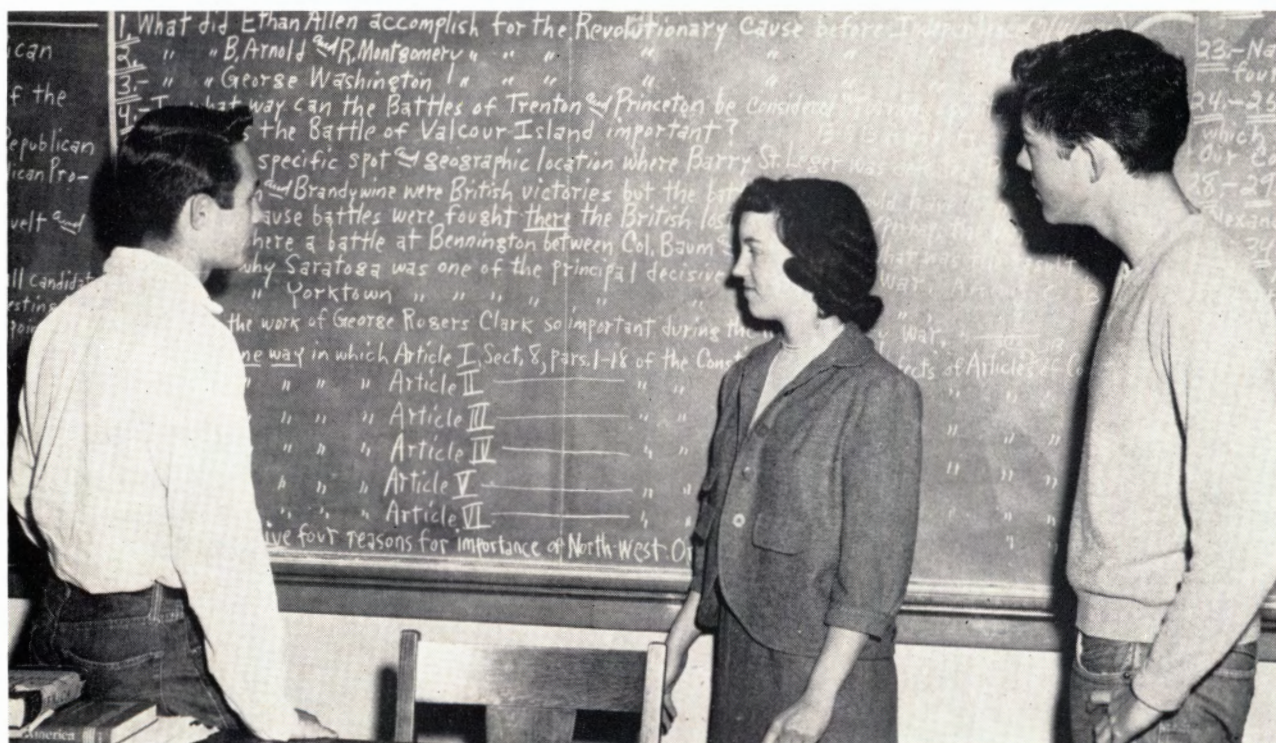 ican
f the
Republican
lican Pro-
velt and
ll candidat
esting
poin
1. What did Ethan Allen accomplish for the Revolutionary Cause before
2. " " B. Arnold and R. Montgomery " " " " " "
3.- " " George Washington " " " " " "
4.- what way can the Battles of Trenton and Princeton be considered
the Battle of Valcour Island important?
specific spot and geographic location where Barry St. Leger was
and Brandywine were British victories but the
ause battles were fought there the British
here a battle at Bennington between Col. Baum
why Saratoga was one of the principal decisive War.
" Yorktown " " " " " "
the work of George Rogers Clark so important during the War.
ne way in which Article I, Sect. 8, pars. 1-18 of the Const ects of Articles of
" " " " Article II " " " " "
" " " Article III " " " " "
" " " Article IV " " " " "
" " " Article V " " " " "
" " " Article VI " " " " "
ive four reasons for importance of North-West Or
23.- Na
four
24.-25
which
Our Co
28-29
lexand
34
America